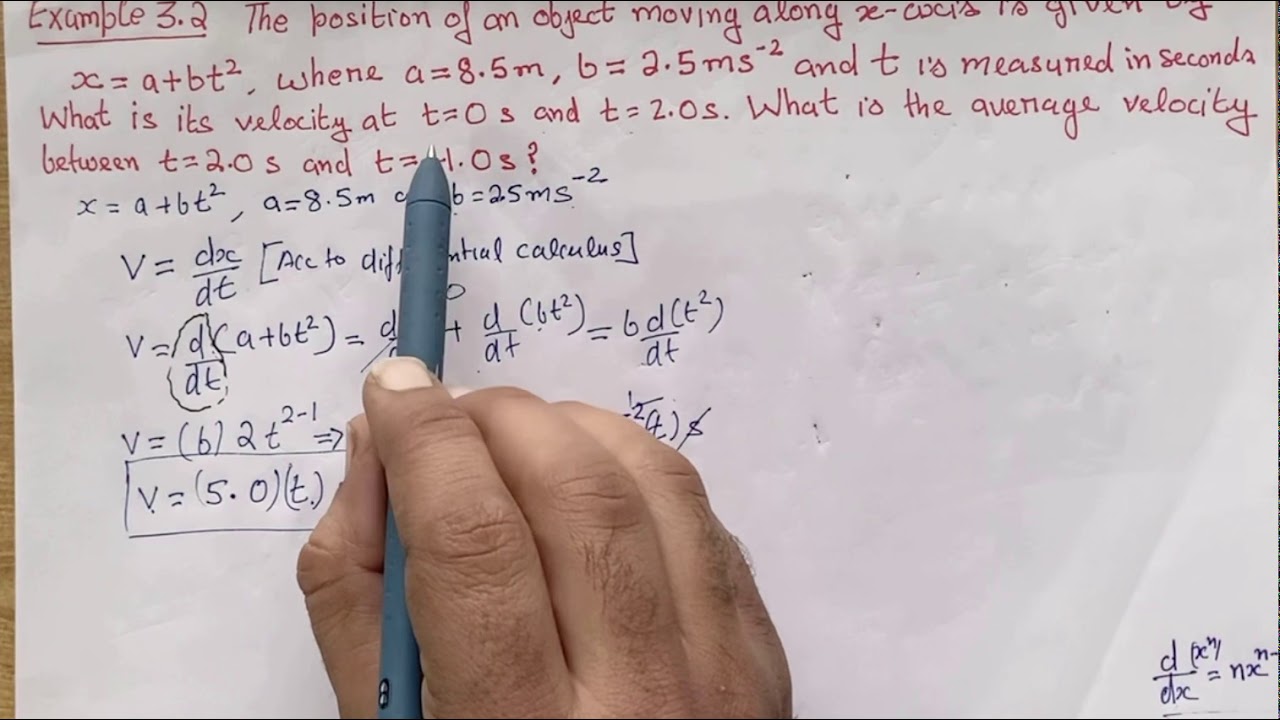 Example 3.2 The position of an object moving along x-axis is given by
x = a+bt², where a = 8.5m, b = 2.5ms⁻² and t is measured in seconds
What is its velocity at t=0 s and t = 2.0s. What is the average velocity
between t=2.0 s and t= 4.0s?
x = a+bt², a=8.5m b=25ms⁻²
V = dx/dt [Acc to differential calculus]
V = d/dt (a+bt²) = + d/dt (bt²) = b d(t²)/dt
V = (b) 2t²⁻¹ ⇒ ⁻²(t)
V = (5.0)(t)
d/dx (xⁿ) = nxⁿ⁻